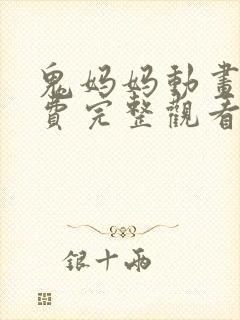 鬼妈妈動畫
費完整觀看
银十兩